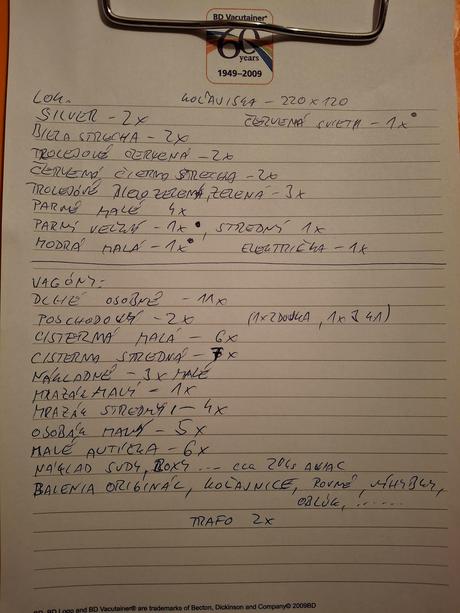 BD Vacutainer®
60
years
1949–2009
LOK. KOĽAJISKA – 220 x 120
SILVER – 2x ČERVENÁ SVIETI – 1x
BIELA STRECHA – 2x
TROLEJOVÉ ČERVENÁ – 2x
ČERVENÁ ČIERNA STRECHA – 2x
TROLEJOVÉ BIELOZELENÁ, ZELENÁ – 3x
PARNÉ MALÉ 4x
PARNÝ VEĽKÝ – 1x, STREDNÝ 1x
MODRÁ MALÁ – 1x ELEKTRIČKA – 1x
VAGÓNY:
DLHÉ OSOBNÉ – 11x
POSCHODOVÝ – 2x
CISTERNA MALÁ – 6x
CISTERNA STREDNÁ – 7x
NÁKLADNÉ – 3x MALÉ
MRAZÁK MALÝ – 1x
MRAZÁK STREDNÝ – 4x
OSOBÁK MALÝ – 5x
MALÉ AUTÍČKA – 6x
NÁKLAD SUDY, BOXY ... cca 20ks
BALENIA ORIGINÁL, KOĽAJNICE, ROVNÉ, VÝHYBKY,
OBLÚK, .......
TRAFO 2x
BD, BD Logo and BD Vacutainer® are trademarks of Becton, Dickinson and Company© 2009BD